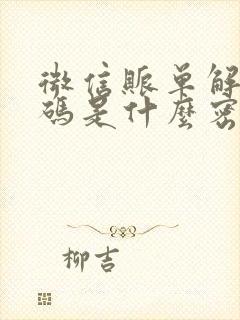 微信賬单解
碼是什麼密
柳吉